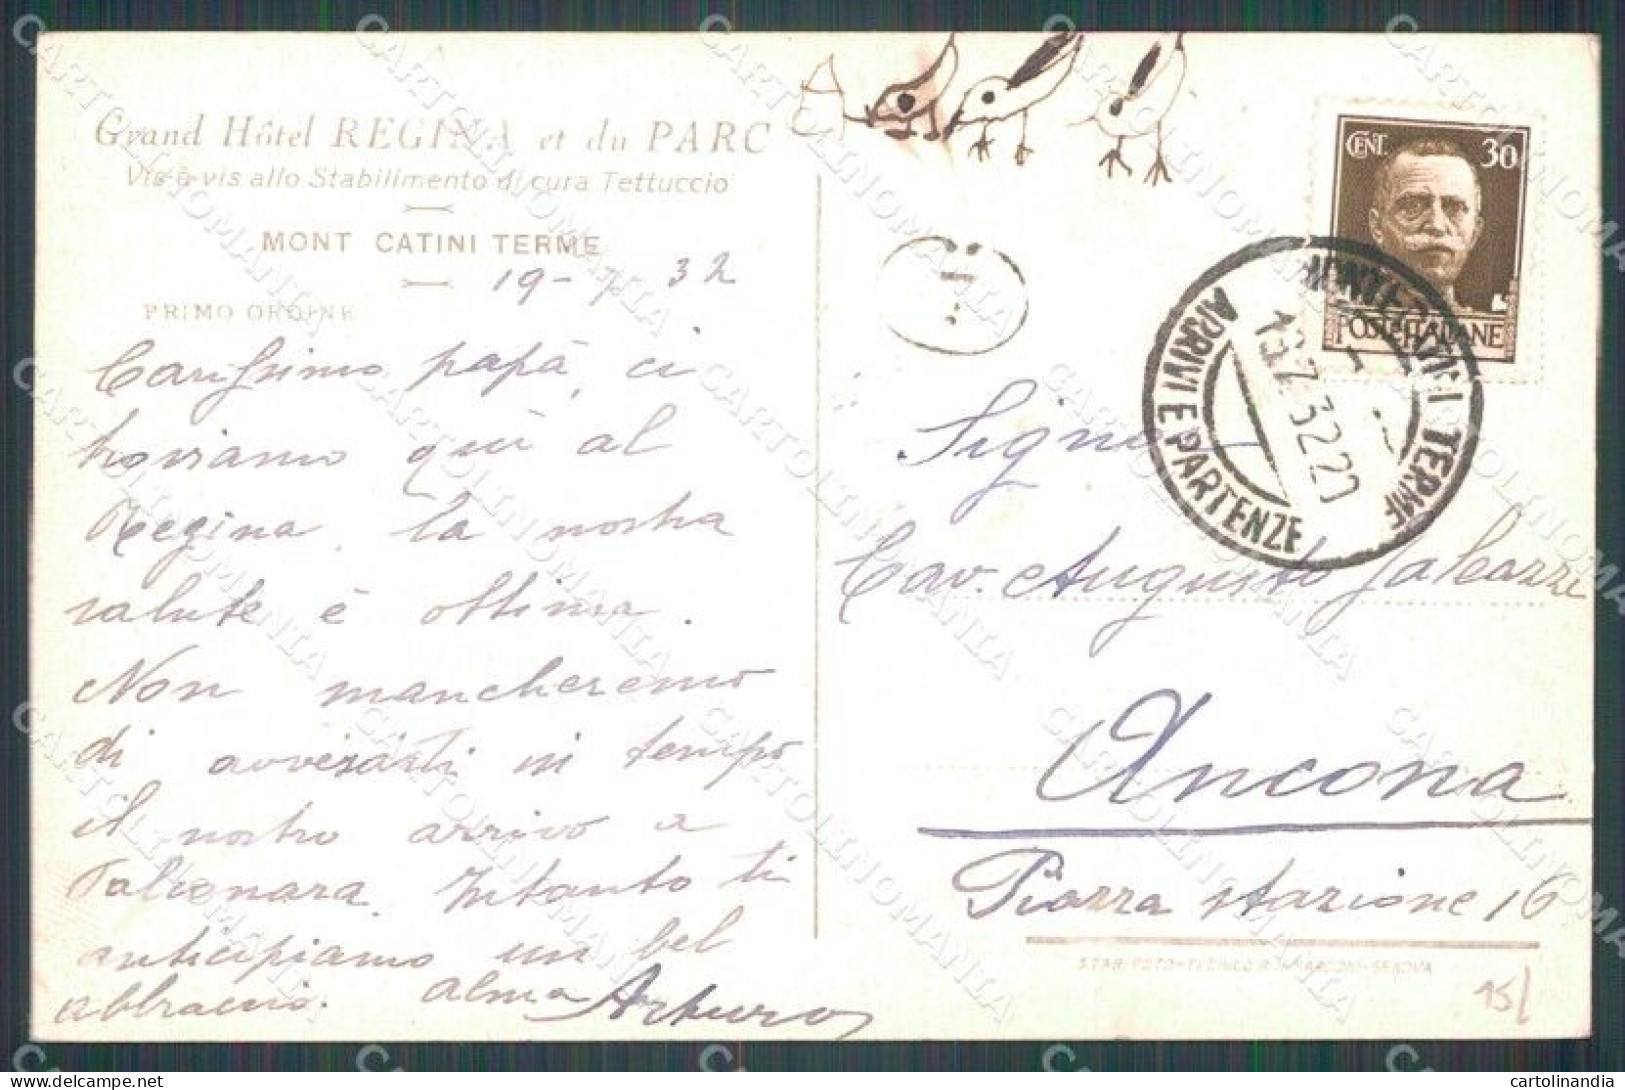 Grand Hôtel REGINA et du PARC
Vis-à-vis allo Stabilimento di cura Tettuccio
MONT CATINI TERME
19-7 32
PRIMO ORDINE
Carissimo papà, ci
troviamo quì al
Regina, la nostra
salute è ottima.
Non mancheremo
di avvisarti in tempo
il nostro arrivo a
Falconara. Intanto ti
anticipiamo un bel
abbraccio. Alma Arturo
CENT. 30
POSTE ITALIANE
MONTECATINI TERME
ARRIVI E PARTENZE
Signor
Cav. Augusto Galeazzi
Ancona
Piazza Stazione 16
15
CARTOLINOMANIA
cartolinandia